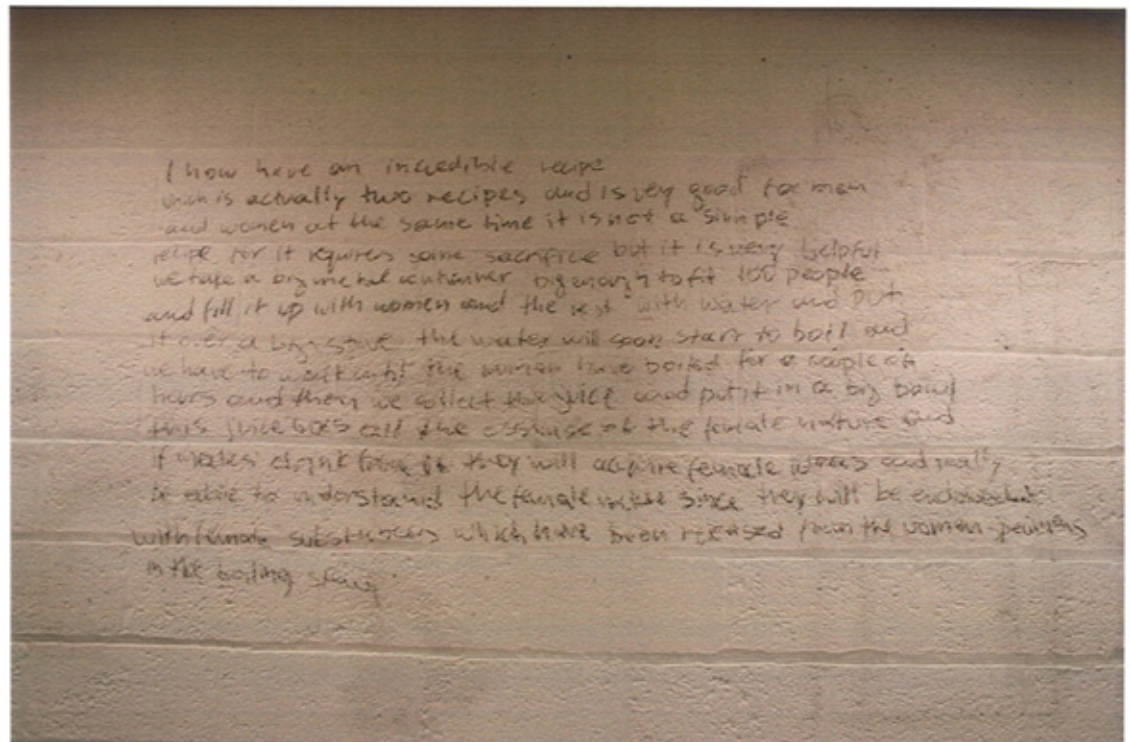 I now have an incredible recipe
which is actually two recipes and is very good for men
and women at the same time it is not a simple
recipe for it requires some sacrifice but it is very helpful
we take a big metal container big enough to fit 100 people
and fill it up with women and the rest with water and put
it over a big stove the water will soon start to boil and
we have to wait until the women have boiled for a couple of
hours and then we collect the juice and put it in a big bowl
this juice has all the of the female nature and
if males drink from it they will acquire female and really
be able to understand the female since they will be
with female which have been released from the women
in the boiling